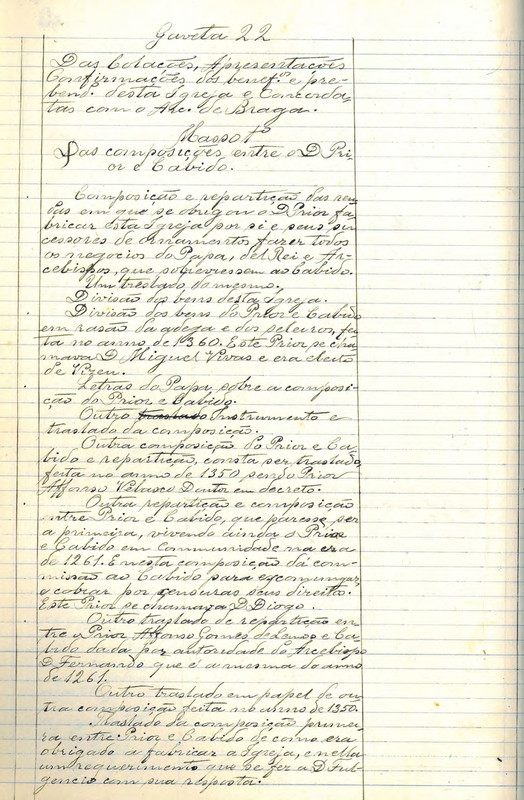 Gaveta 22
Das Colações, Apresentações
Confirmações dos benef.os e pre-
bend.s desta Igreja e Concorda-
tas com o Arc. de Braga.
Masso 1º
Das composições entre o D. Pri-
or e Cabido.
Composição e repartição das ren-
das em que se obrigou o D. Prior fa-
bricar esta Igreja por si e seus su-
cessores de ornamentos fazer todos
os negocios do Papa, del Rei e Ar-
cebispos, que sobreviessem ao Cabido.
Um treslado do mesmo.
Divisão dos bens desta Igreja.
Divisão dos bens do Prior e Cabido
em rasão da adega e dos seleiros, fei-
ta no anno de 1360. Este Prior se cha-
mava D. Miguel Vivas e era eleito
de Vizeu.
Letras do Papa sobre a composi-
ção do Prior e Cabido.
Outro Instrumento e
traslado da composição.
Outra composição do Prior e Ca-
bido e repartição, consta ser traslado,
feita no anno de 1350 sendo Prior
Affonso Velasco Doutor em decreto.
Outra repartição e composição
entre Prior e Cabido, que paresse ser
a primeira, vivendo ainda o Prior
e Cabido em Communidade na era
de 1261. E nesta composição dá com-
missão ao Cabido para excomungar,
e cobrar por censuras seus direitos.
Este Prior se chamava D. Diogo.
Outro traslado de repartição en-
tre o Prior Affonso Gomes de Lemos e Ca-
bido dada por autoridade do Arcebispo
D. Fernando que é a mesma do anno
de 1261.
Outro traslado em papel de ou-
tra composição feita no anno de 1350.
Traslado da composição primei-
ra entre Prior e Cabido de como era
obrigado a fabricar a Igreja, e nella
um requerimento que se fez a D. Ful-
gencio com sua resposta.